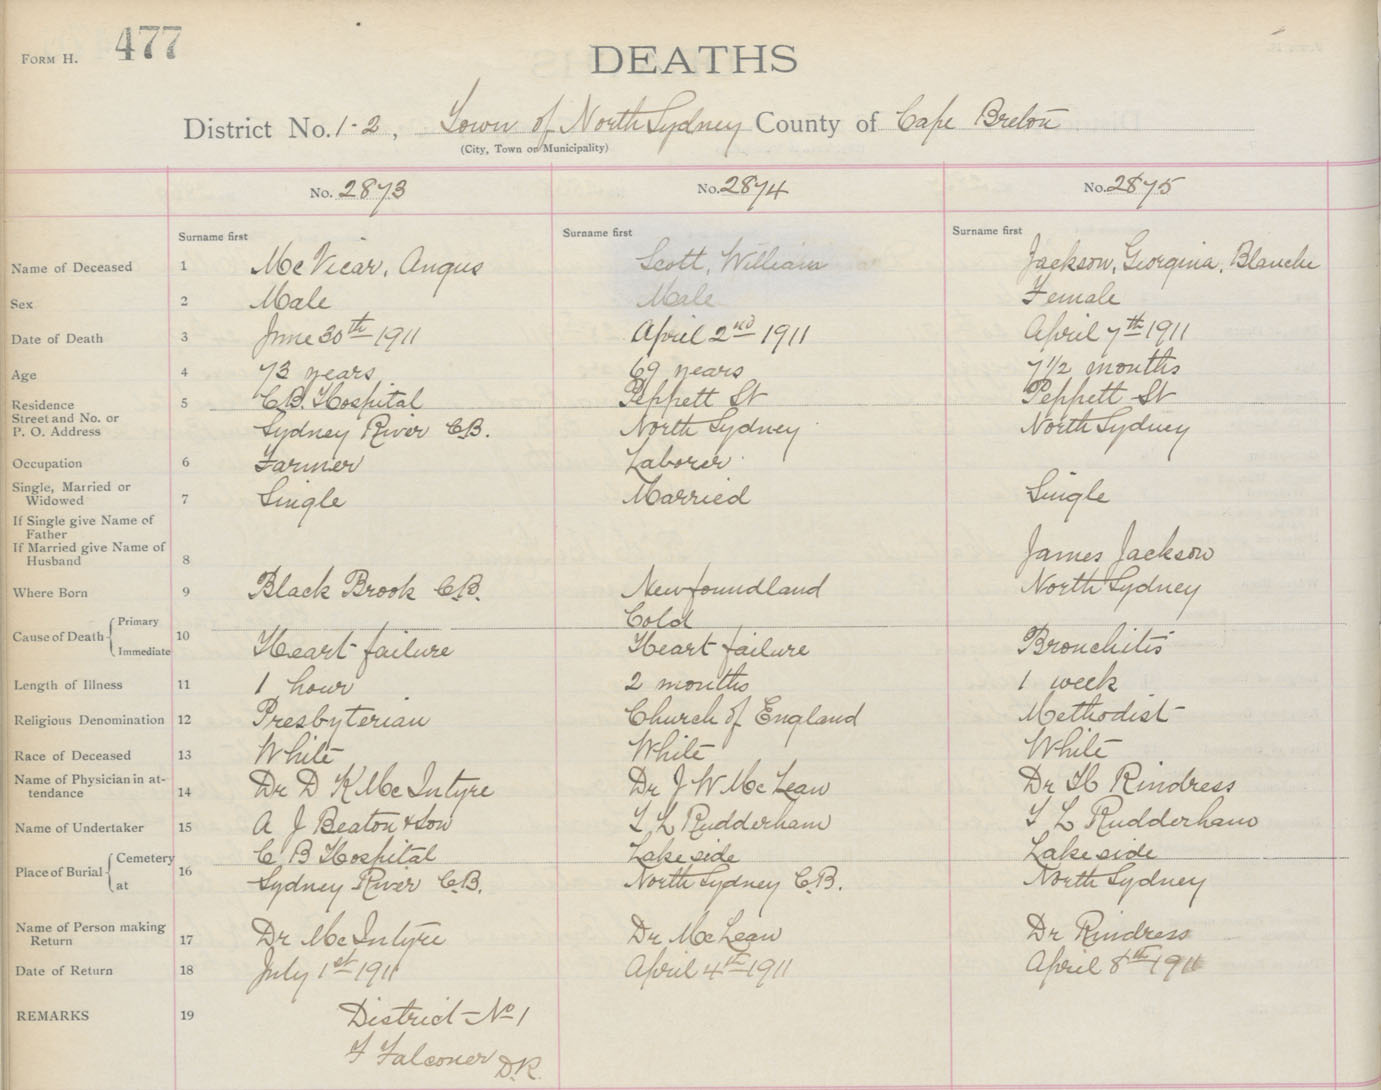 FORM H. 477
DEATHS
District No. 1-2, Town of North Sydney County of Cape Breton
(City, Town or Municipality)
No. 2873 No. 2874 No. 2875
Surname first Surname first Surname first
Name of Deceased 1 McVicar, Angus Scott, William Jackson, Georgina, Blanche
Sex 2 Male Male Female
Date of Death 3 June 30th 1911 April 2nd 1911 April 7th 1911
Age 4 73 years 69 years 7 1/2 months
Residence 5 C.B. Hospital Peppett St Peppett St
Street and No. or
P. O. Address Sydney River C.B. North Sydney North Sydney
Occupation 6 Farmer Laborer
Single, Married or
Widowed 7 Single Married Single
If Single give Name of
Father
If Married give Name of
Husband 8 James Jackson
Where Born 9 Black Brook C.B. Newfoundland North Sydney
Cause of Death Primary 10 Cold
Immediate Heart failure Heart failure Bronchitis
Length of Illness 11 1 hour 2 months 1 week
Religious Denomination 12 Presbyterian Church of England Methodist
Race of Deceased 13 White White White
Name of Physician in at-
tendance 14 Dr D K McIntyre Dr J W McLean Dr H Rindress
Name of Undertaker 15 A J Beaton & Son T L Rudderham T L Rudderham
Place of Burial Cemetery 16 C B Hospital Lakeside Lakeside
at Sydney River C.B. North Sydney C.B. North Sydney
Name of Person making
Return 17 Dr McIntyre Dr McLean Dr Rindress
Date of Return 18 July 1st 1911 April 4th 1911 April 8th 1911
REMARKS 19 District No 1
F Falconer D.R.